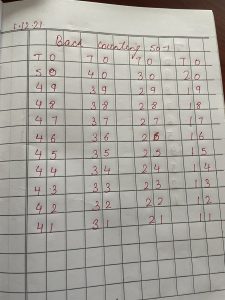 1.12.21
Back counting 50-1
T O T O T O T O
5 0 4 0 3 0 2 0
4 9 3 9 2 9 1 9
4 8 3 8 2 8 1 8
4 7 3 7 2 7 1 7
4 6 3 6 2 6 1 6
4 5 3 5 2 5 1 5
4 4 3 4 2 4 1 4
4 3 3 3 2 3 1 3
4 2 3 2 2 2 1 2
4 1 3 1 2 1 1 1